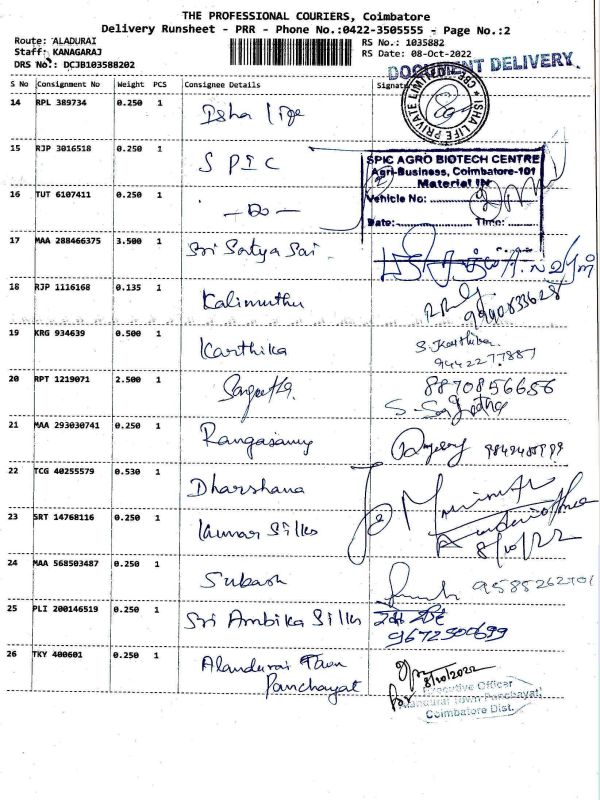 THE PROFESSIONAL COURIERS, Coimbatore
Delivery Runsheet - PRR - Phone No.:0422-3505555 - Page No.:2
Route: ALADURAI
Staff: KANAGARAJ
DRS No.: DCJB103588202
RS No.: 1035882
RS Date: 08-Oct-2022
DOCUMENT DELIVERY.
S No Consignment No Weight PCS Consignee Details Signat
14 RPL 389734 0.250 1 Isha life
ISHA LIFE PRIVATE LIMITED CBE
15 RJP 3016518 0.250 1 SPIC
SPIC AGRO BIOTECH CENTRE
Agri-Business, Coimbatore-101
Material IN
Vehicle No:
Date: Time:
16 TUT 6107411 0.250 1 -Do-
17 MAA 288466375 3.500 1 Sri Satya Sai
18 RJP 1116168 0.135 1 Kalimuthu
19 KRG 934639 0.500 1 Karthika S. Karthika
9442277887
20 RPT 1219071 2.500 1 Sangeetha 8870856656
S. Sageetha
21 MAA 293030741 0.250 1 Rangasamy
22 TCG 40255579 0.530 1 Dharshana
23 SRT 14768116 0.250 1 Kumar Silks
8/10/22
24 MAA 568503487 0.250 1 Subash
25 PLI 200146519 0.250 1 Sri Ambika Silks
9672500699
26 TKY 400601 0.250 1 Alandurai Town
Panchayat
8/10/2022
Executive Officer
Alandurai Town Panchayat
Coimbatore Dist.